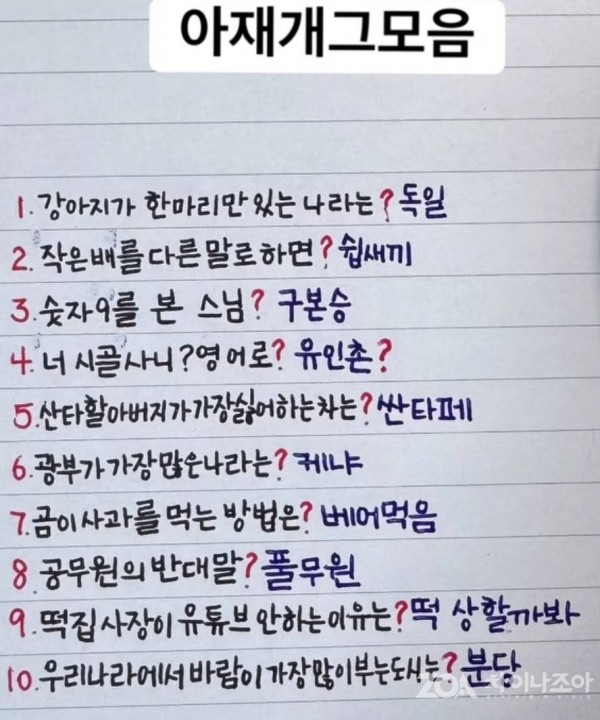 아재개그모음
1. 강아지가 한마리만 있는 나라는? 독일
2. 작은배를 다른말로하면? 쉽새끼
3. 숫자9를 본 스님? 구본승
4. 너 시골사니? 영어로? 유인촌?
5. 산타할아버지가 가장싫어하는차는? 싼타페
6. 광부가 가장 많은나라는? 케냐
7. 곰이사과를 먹는 방법은? 베어먹음
8. 공무원의 반대말? 풀무원
9. 떡집 사장이 유튜브 안하는이유는? 떡 상할까봐
10. 우리나라에서 바람이 가장많이부는도시는? 분당
ZOA 차이나조아